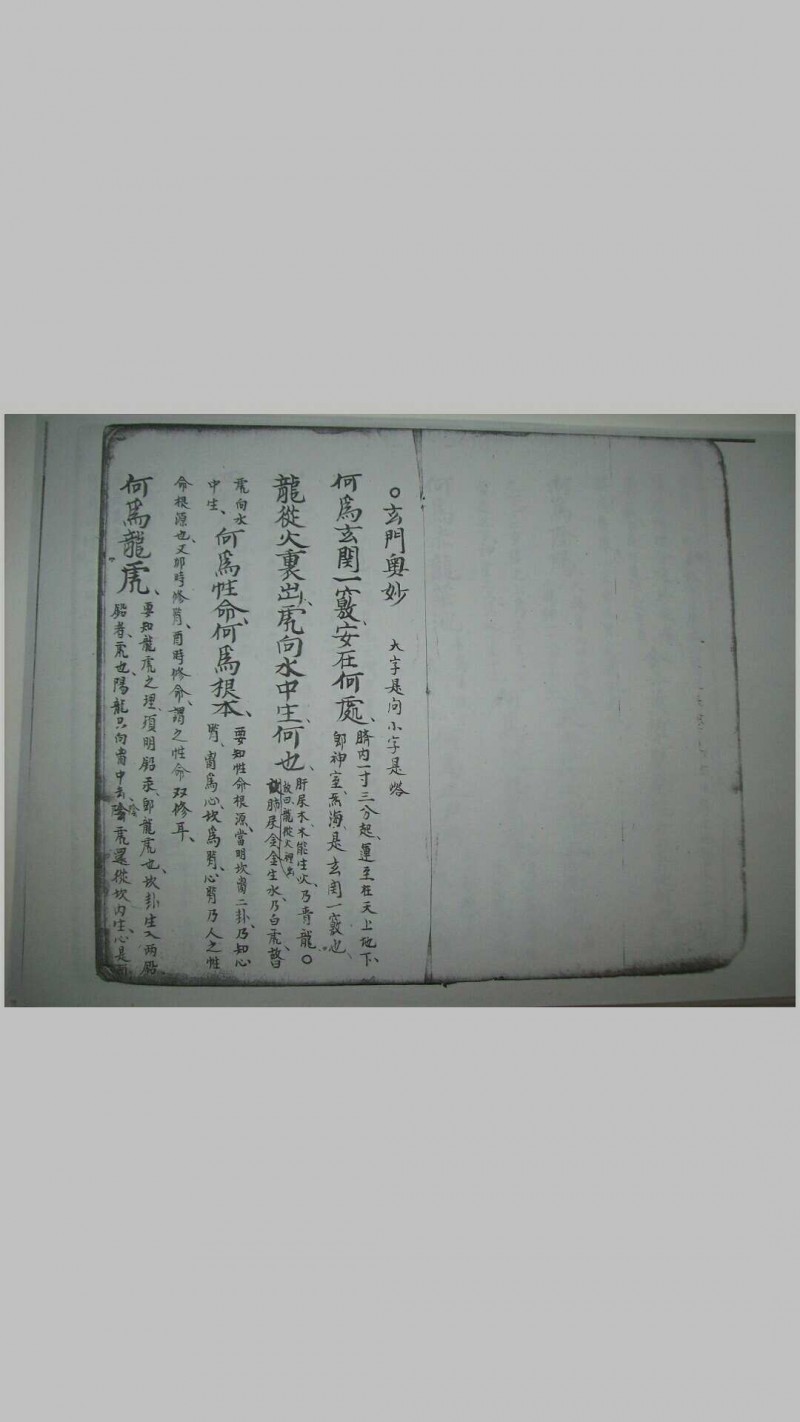 ○玄門奧妙 大字是问小字是答
何爲玄関一竅、安在何處、臍内一寸三分起、運至在天上地下、
即神室、炁海、是玄関一竅也、
龍從火裏出、虎向水中生、何也、肝属木、木能生火、乃青龍○
故曰、龍從火裡出
肺属金、金生水、乃白虎、
虎向水
中生、何爲性命、何爲根本、要知性命根源、當明坎离二卦、乃知心
腎、离爲心、坎爲腎、心腎乃人之性
命根源也、又卯時修腎、酉時修命、謂之性命双修耳、
何爲龍虎、要知龍虎之理、須明鉛汞、即龍虎也、坎卦生入两鉛、
鉛者、虎也、陽龍只向离中去、陰虎還從坎内生、心是